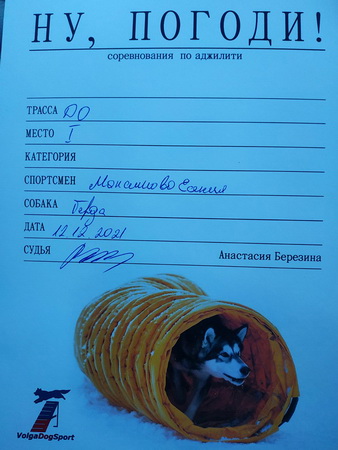 НУ, ПОГОДИ!
соревнования по аджилити
ТРАССА ДО
МЕСТО I
КАТЕГОРИЯ
СПОРТСМЕН
СОБАКА Герда
ДАТА 12.12.2021
СУДЬЯ Анастасия Березина
VolgaDogSport